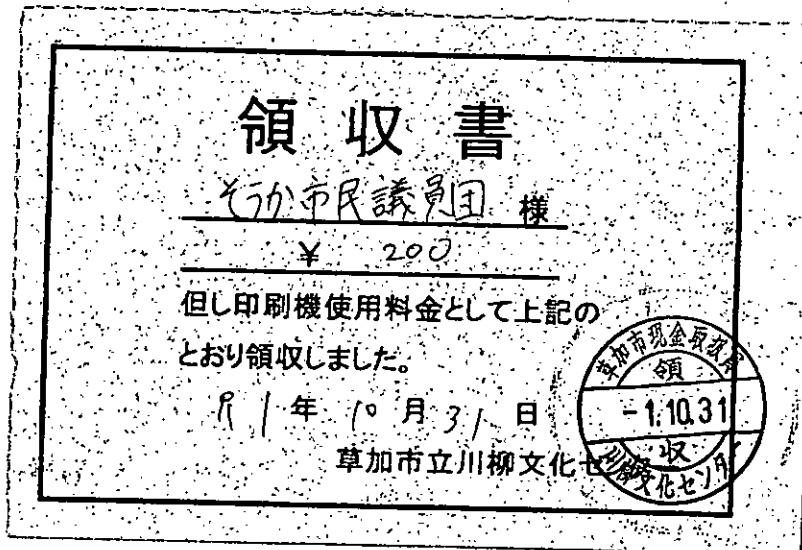 領収書
そうか市民議員団 様
¥ 200
但し印刷機使用料金として上記の
とおり領収しました。
R1年10月31日
草加市立川柳文化セ
草加市現金取扱員
領
-1.10.31
収
川柳文化センター